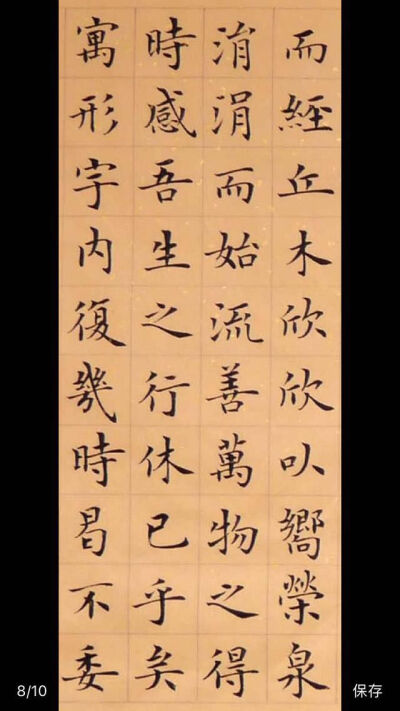 而經丘木欣欣以嚮榮泉
涓涓而始流善萬物之得
時感吾生之行休已乎矣
寓形宇内復幾時曷不委
8/10
保存